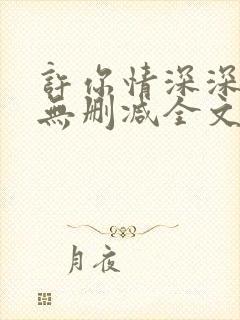 許你情深深
無刪减全文
月夜